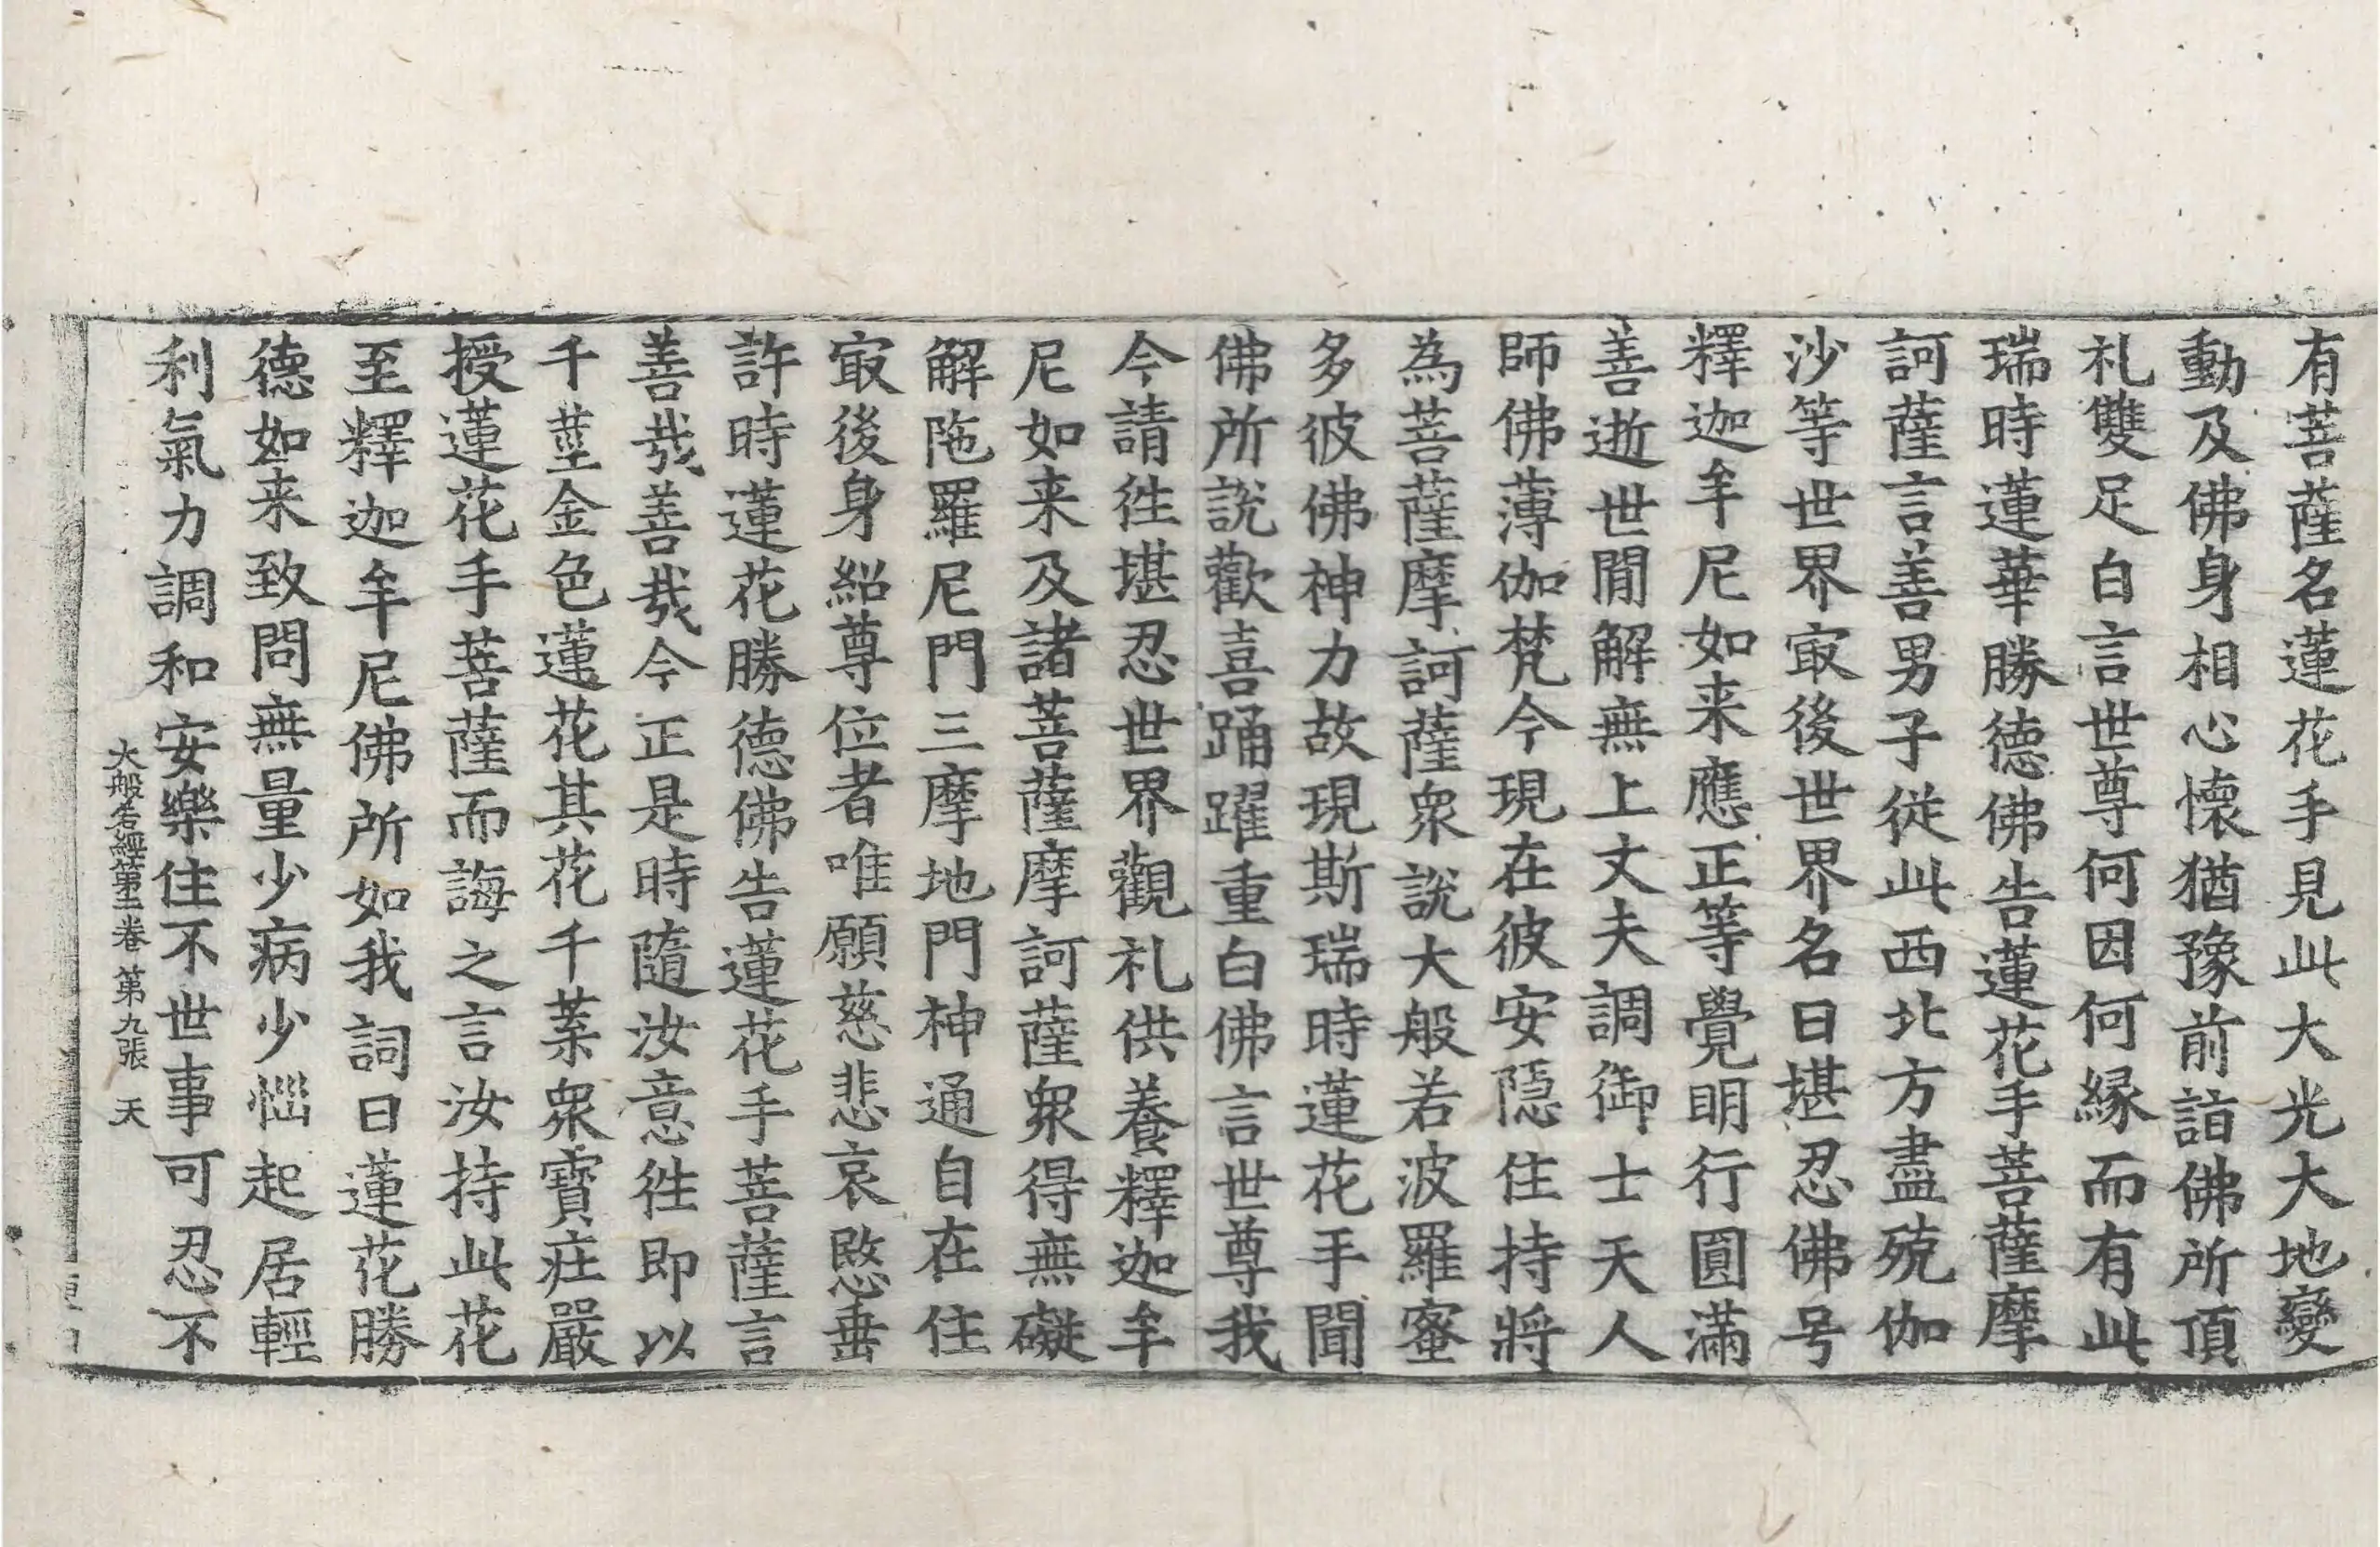 有菩薩名蓮花手見此大光大地變
動及佛身相心懷猶豫前詣佛所頂
礼雙足白言世尊何因何縁而有此
瑞時蓮華勝德佛告蓮花手菩薩摩
訶薩言善男子從此西北方盡殑伽
沙等世界㝡後世界名曰堪忍佛号
釋迦牟尼如来應正等覺明行圓滿
善逝世間解無上丈夫調御士天人
師佛薄伽梵今現在彼安隱住持將
為菩薩摩訶薩衆說大般若波羅蜜
多彼佛神力故現斯瑞時蓮花手聞
佛所說歡喜踊躍重白佛言世尊我
今請往堪忍世界觀礼供養釋迦牟
尼如来及諸菩薩摩訶薩衆得無礙
解陁羅尼門三摩地門神通自在住
㝡後身紹尊位者唯願慈悲哀愍垂
許時蓮花勝德佛告蓮花手菩薩言
善哉善哉今正是時隨汝意往即以
千莖金色蓮花其花千葉衆寶莊嚴
授蓮花手菩薩而誨之言汝持此花
至釋迦牟尼佛所如我詞曰蓮花勝
德如来致問無量少病少惱起居輕
利氣力調和安樂住不世事可忍不
大般若經第二卷 第九張 天